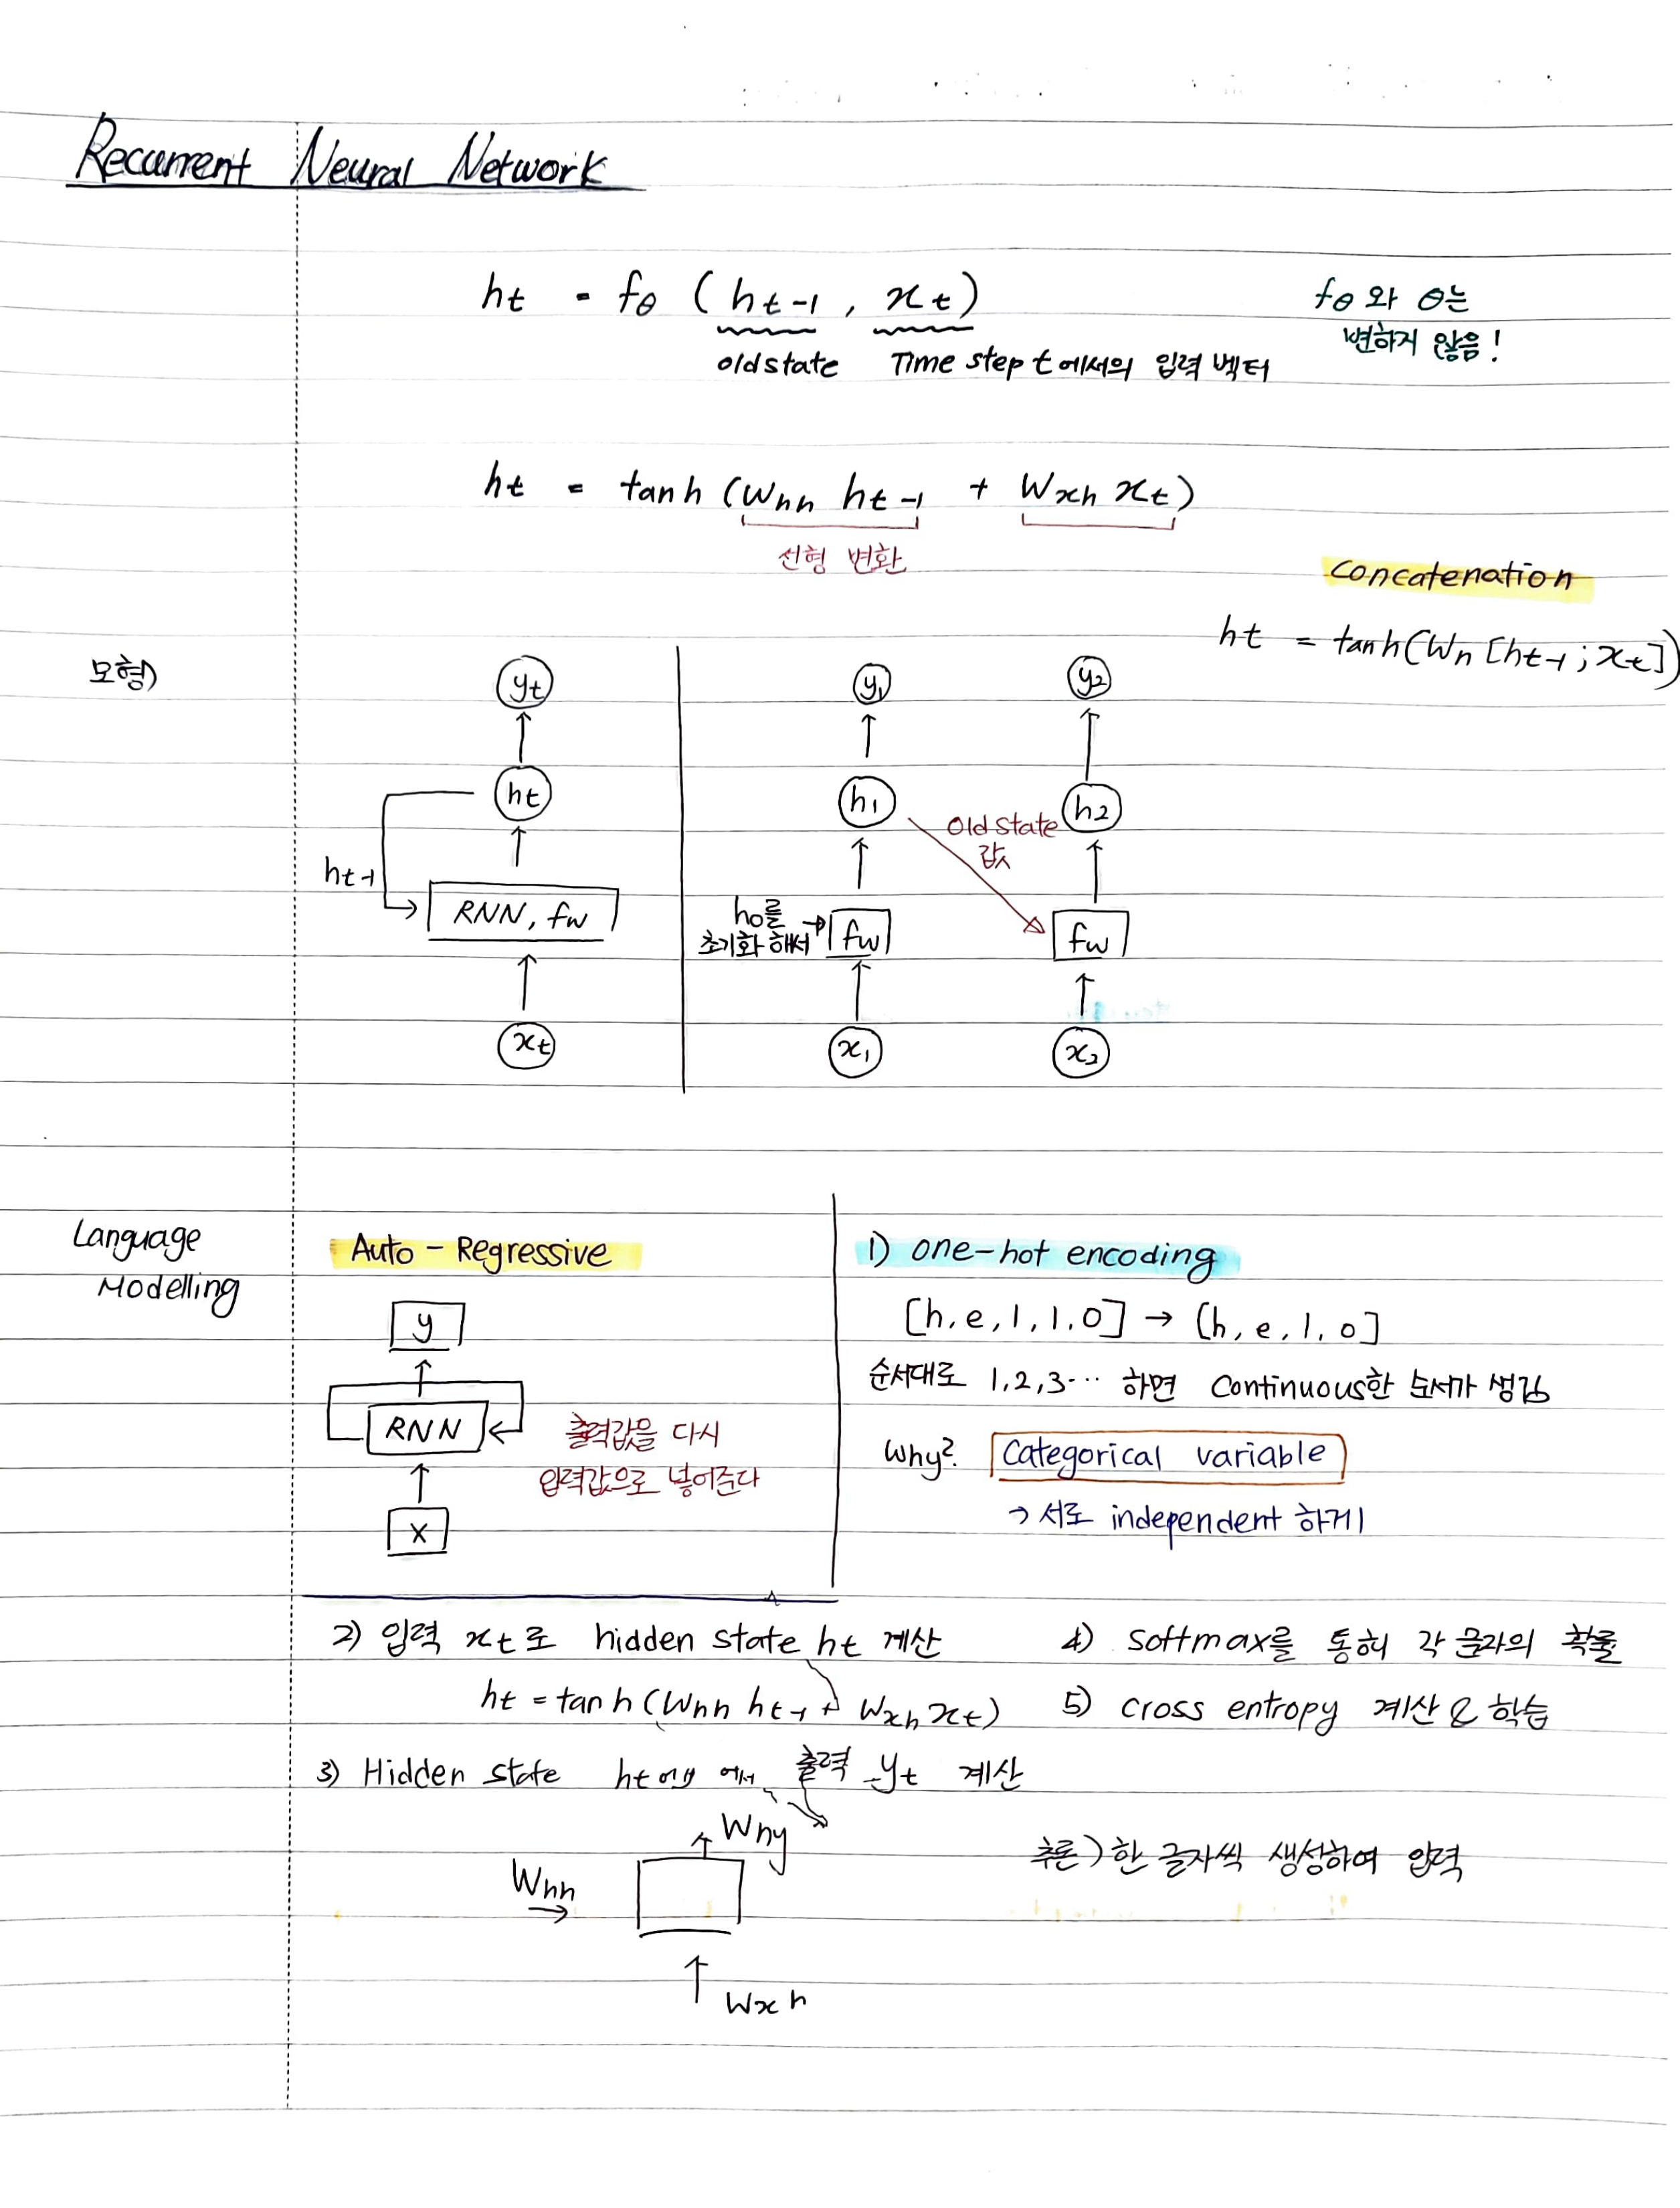 Recurrent Neural Network
ht = fθ (ht-1, xt)
fθ 와 θ는
변하지 않음!
old state
Time step t 에서의 입력 벡터
ht = tanh (Whh ht-1 + Wxh xt)
선형 변환
Concatenation
ht = tanh(Wh [ht-1 ; xt])
모형)
yt
ht
ht-1
RNN, fw
xt
y1
y2
h1
h2
old state
값
h0를
초기화 해서
fw
fw
x1
x2
Language
Modelling
Auto - Regressive
y
RNN
x
출력값을 다시
입력값으로 넣어준다
1) one-hot encoding
[h, e, l, l, o] → [h, e, l, o]
순서대로 1, 2, 3 ... 하면 Continuous한 순서가 생김
Why? Categorical variable
→ 서로 independent 하게
2) 입력 xt로 hidden state ht 계산
ht = tanh (Whh ht-1 + Wxh xt)
3) Hidden state ht 에서 출력 yt 계산
Why
Whh
Wxh
4) Softmax를 통해 각 문자의 확률
5) cross entropy 계산 & 학습
추론) 한 글자씩 생성하여 입력